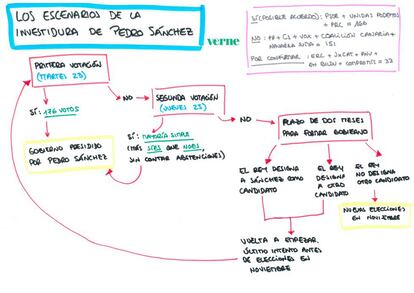 LOS ESCENARIOS DE LA
INVESTIDURA DE PEDRO SÁNCHEZ
verne
SÍ (POSIBLE ACUERDO): PSOE + UNIDAS PODEMOS
+ PRC = 166
NO: PP + CS + VOX + COALICIÓN CANARIA +
NAVARRA SUMA = 151
POR CONFIRMAR: ERC + JXCAT + PNV +
EH BILDU + COMPROMÍS = 33
PRIMERA VOTACIÓN
(MARTES 23)
NO
SEGUNDA VOTACIÓN
(JUEVES 25)
NO
PLAZO DE DOS MESES
PARA FORMAR GOBIERNO
SÍ: 176 VOTOS
SÍ: MAYORÍA SIMPLE
(MÁS SÍES QUE NOES,
SIN CONTAR ABSTENCIONES)
GOBIERNO PRESIDIDO
POR PEDRO SÁNCHEZ
EL REY DESIGNA
A SÁNCHEZ COMO
CANDIDATO
EL REY
DESIGNA
A OTRO
CANDIDATO
EL REY
NO DESIGNA
OTRO CANDIDATO
NUEVAS ELECCIONES
EN NOVIEMBRE
VUELTA A EMPEZAR.
ÚLTIMO INTENTO ANTES
DE ELECCIONES EN
NOVIEMBRE